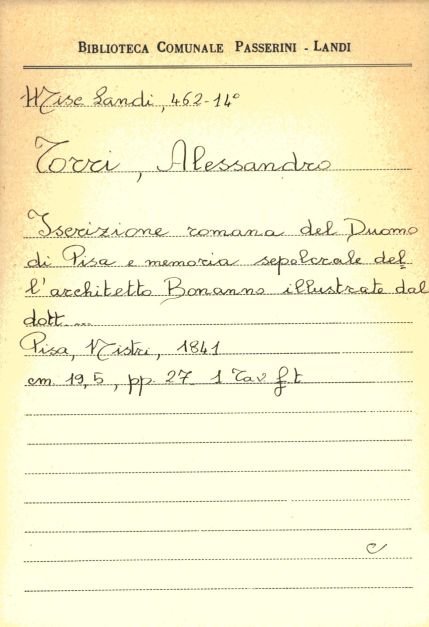 BIBLIOTECA COMUNALE PASSERINI - LANDI
Misc Landi, 462-14°
Torri, Alessandro
Iscrizione romana del Duomo
di Pisa e memoria sepolcrale del=
l'architetto Bonanno illustrate dal
dott....
Pisa, Nistri, 1841
cm. 19,5, pp. 27 1 Tav. f. t.
c